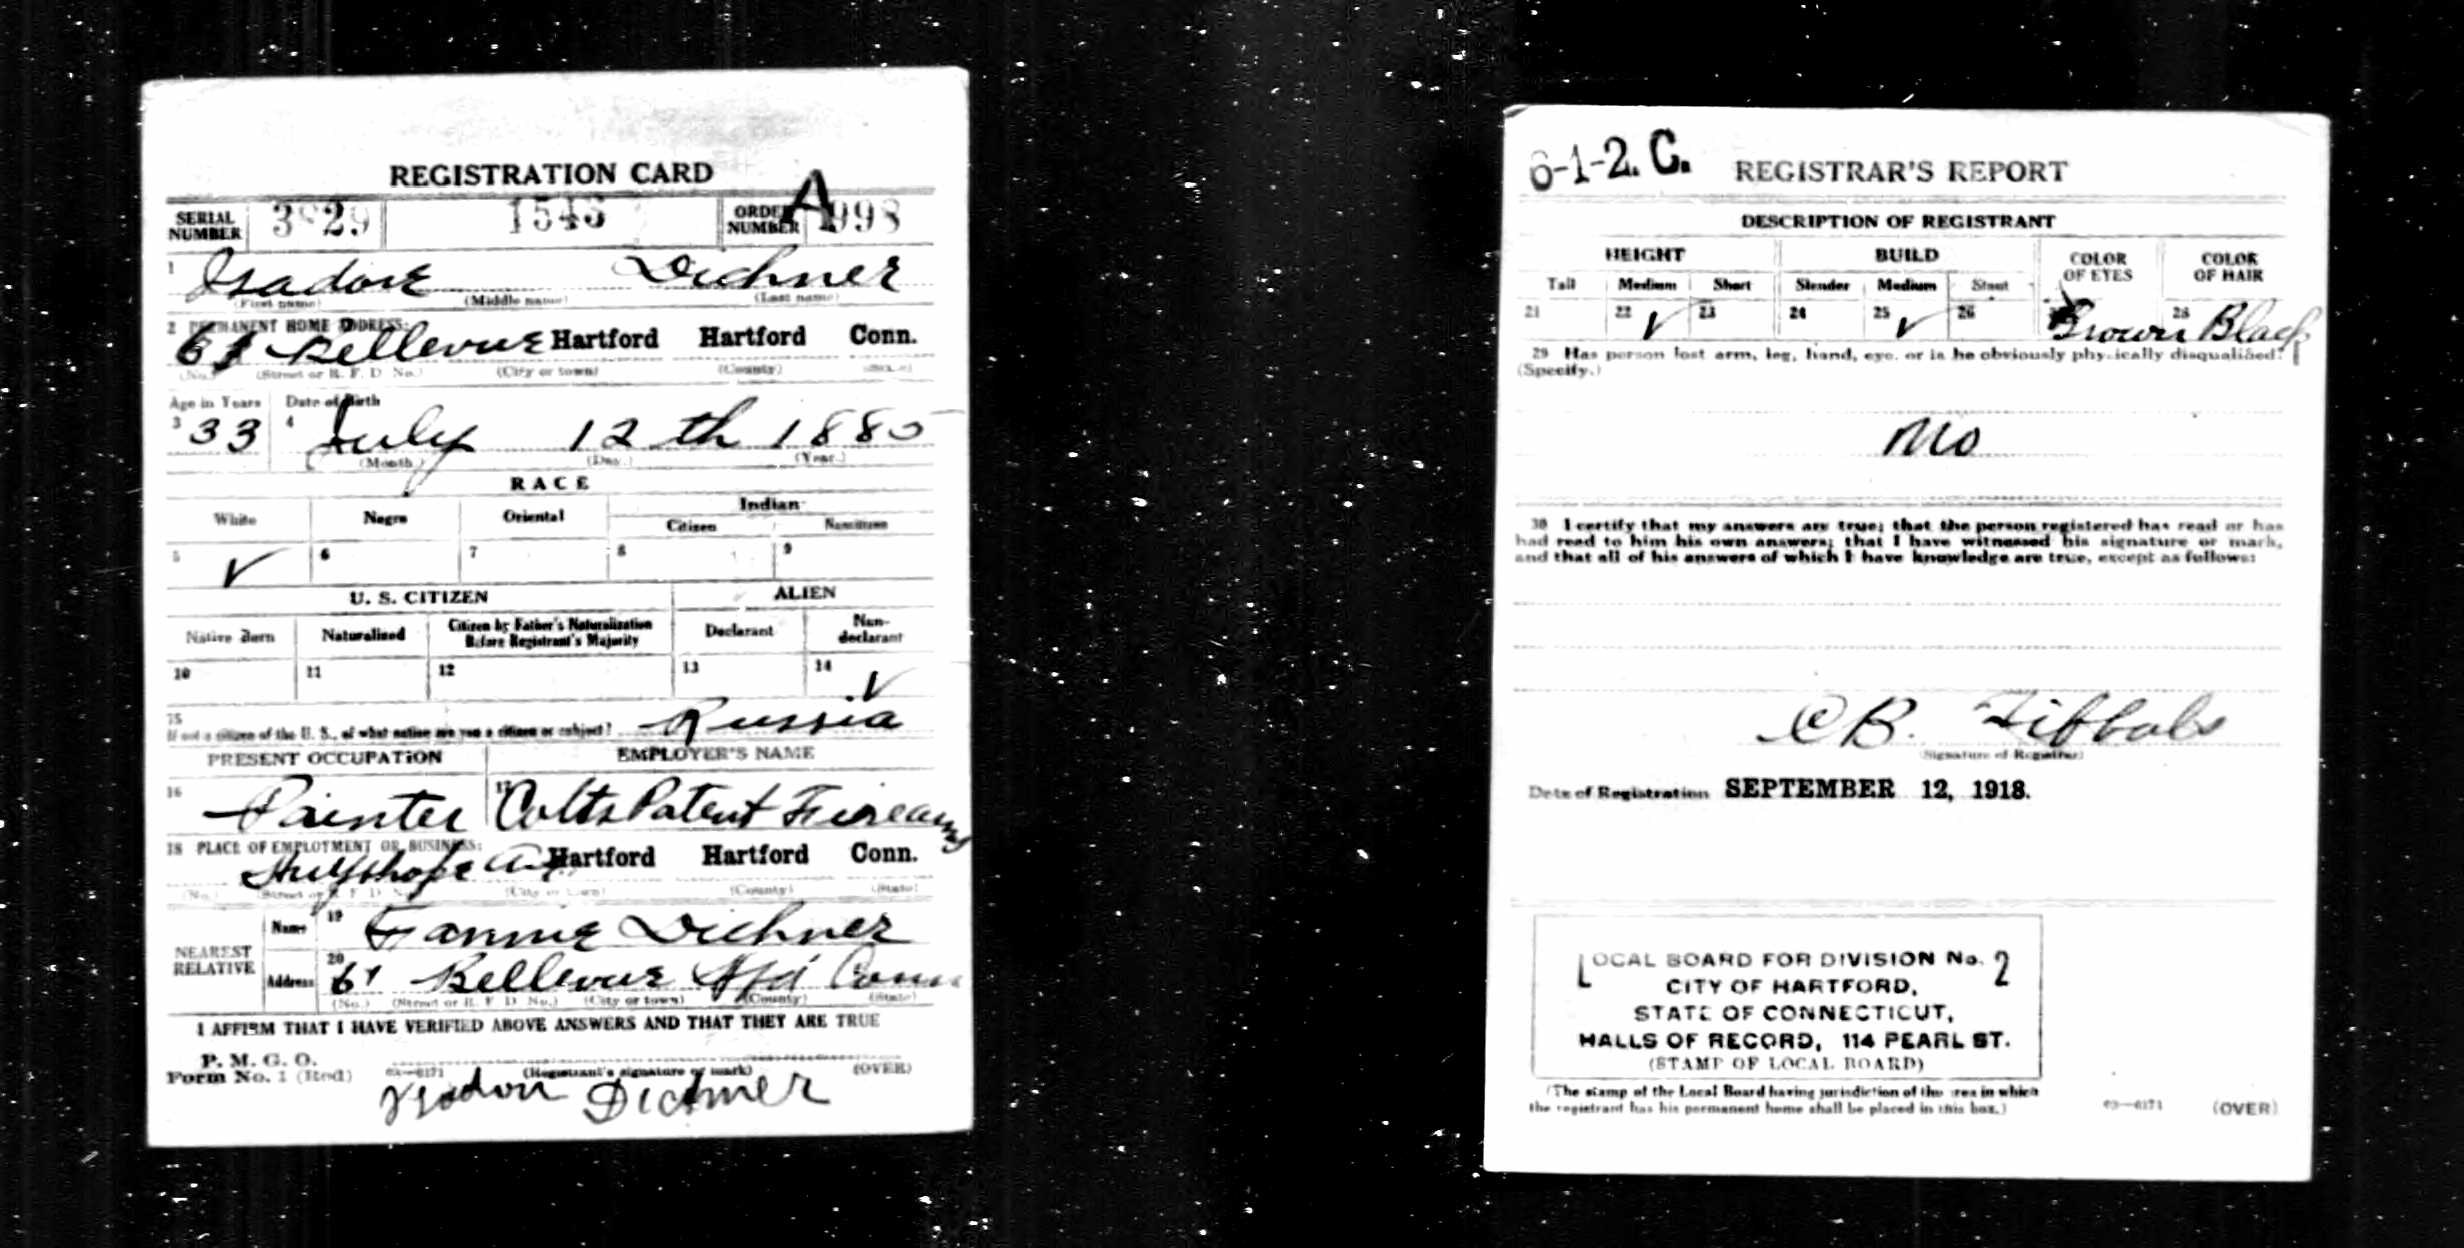 REGISTRATION CARD
SERIAL NUMBER 3829 1546 ORDER NUMBER A998
1 Isadore Dichner
(First name) (Middle name) (Last name)
2 PERMANENT HOME ADDRESS:
61 Bellevue Hartford Hartford Conn.
(No.) (Street or R. F. D. No.) (City or town) (County) (State)
Age in Years Date of Birth
3 33 4 July 12th 1885
(Month.) (Day.) (Year.)
RACE
White Negro Oriental Indian
Citizen Noncitizen
5 ✓ 6 7 8 9
U. S. CITIZEN ALIEN
Native Born Naturalized Citizen by Father's Naturalization Before Registrant's Majority Declarant Non-declarant
10 11 12 13 14 ✓
15 If not a citizen of the U. S., of what nation are you a citizen or subject? Russia
PRESENT OCCUPATION EMPLOYER'S NAME
16 Painter 17 Colts Patent Firearms
18 PLACE OF EMPLOYMENT OR BUSINESS:
Huyshope Av Hartford Hartford Conn.
(No.) (Street or R. F. D. No.) (City or town) (County) (State)
NEAREST RELATIVE
Name 19 Fannie Dichner
Address 20 61 Bellevue Hfd Conn
(No.) (Street or R. F. D. No.) (City or town) (County) (State)
I AFFIRM THAT I HAVE VERIFIED ABOVE ANSWERS AND THAT THEY ARE TRUE
P. M. G. O.
Form No. 1 (Red) 03—6171 (Registrant's signature or mark) (OVER)
Isadore Dichner
6-1-2. C. REGISTRAR'S REPORT
DESCRIPTION OF REGISTRANT
HEIGHT BUILD COLOR OF EYES COLOR OF HAIR
Tall Medium Short Slender Medium Stout
21 22 ✓ 23 24 25 ✓ 26 Brown 28 Black
29 Has person lost arm, leg, hand, eye, or is he obviously physically disqualified?
(Specify.)
No
30 I certify that my answers are true; that the person registered has read or has
had read to him his own answers; that I have witnessed his signature or mark,
and that all of his answers of which I have knowledge are true, except as follows:
C B. Tibbals
(Signature of Registrar)
Date of Registration SEPTEMBER 12, 1918.
LOCAL BOARD FOR DIVISION No. 2
CITY OF HARTFORD,
STATE OF CONNECTICUT,
HALLS OF RECORD, 114 PEARL ST.
(STAMP OF LOCAL BOARD)
(The stamp of the Local Board having jurisdiction of the area in which
the registrant has his permanent home shall be placed in this box.)
03—6171 (OVER)